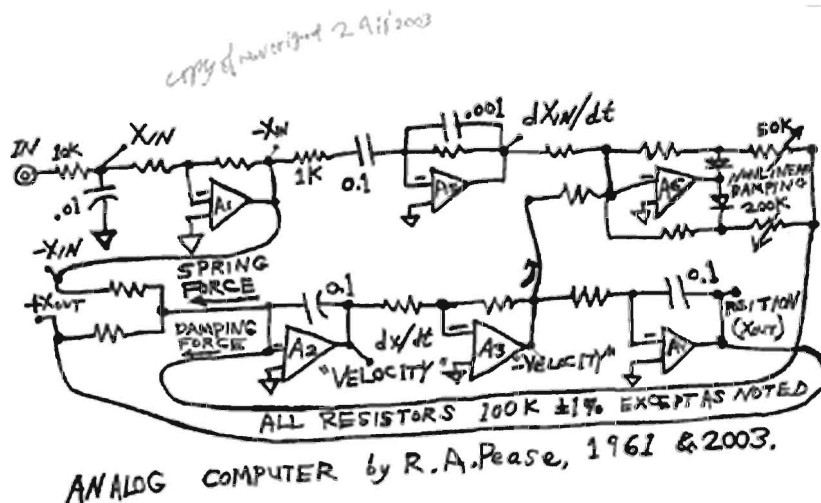 copy of
2003
IN
10K
XIN
.01
-XIN
A1
1K
0.1
.001
dXIN/dt
A5
A6
50K
NONLINEAR
DAMPING
200K
-XIN
+XOUT
SPRING
FORCE
DAMPING
FORCE
0.1
A2
"VELOCITY"
dX/dt
A3
"-VELOCITY"
0.1
A4
POSITION
(XOUT)
ALL RESISTORS 100K ±1% EXCEPT AS NOTED
ANALOG COMPUTER by R.A.Pease, 1961 & 2003.